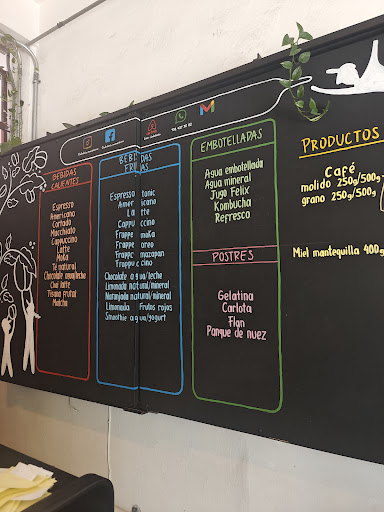 BEBIDAS
CALIENTES
Espresso
Americano
Cortado
Macchiato
Cappuccino
Latte
Moka
Té natural
Chocolate agua/leche
Chai latte
Tisana frutal
Matcha
BEBIDAS
FRIAS
Espresso tonic
Americano
Latte
Cappuccino
Frappe moka
Frappe oreo
Frappe mazapan
Frappuccino
Chocolate agua/leche
Limonada natural/mineral
Naranjada natural/mineral
Limonada Frutos rojos
Smoothie agua/yogurt
EMBOTELLADAS
Agua embotellada
Agua mineral
Jugo Felix
Kombucha
Refresco
POSTRES
Gelatina
Carlota
Flan
Panque de nuez
PRODUCTOS
Café
molido 250g/500g
grano 250g/500g
Miel mantequilla 400g